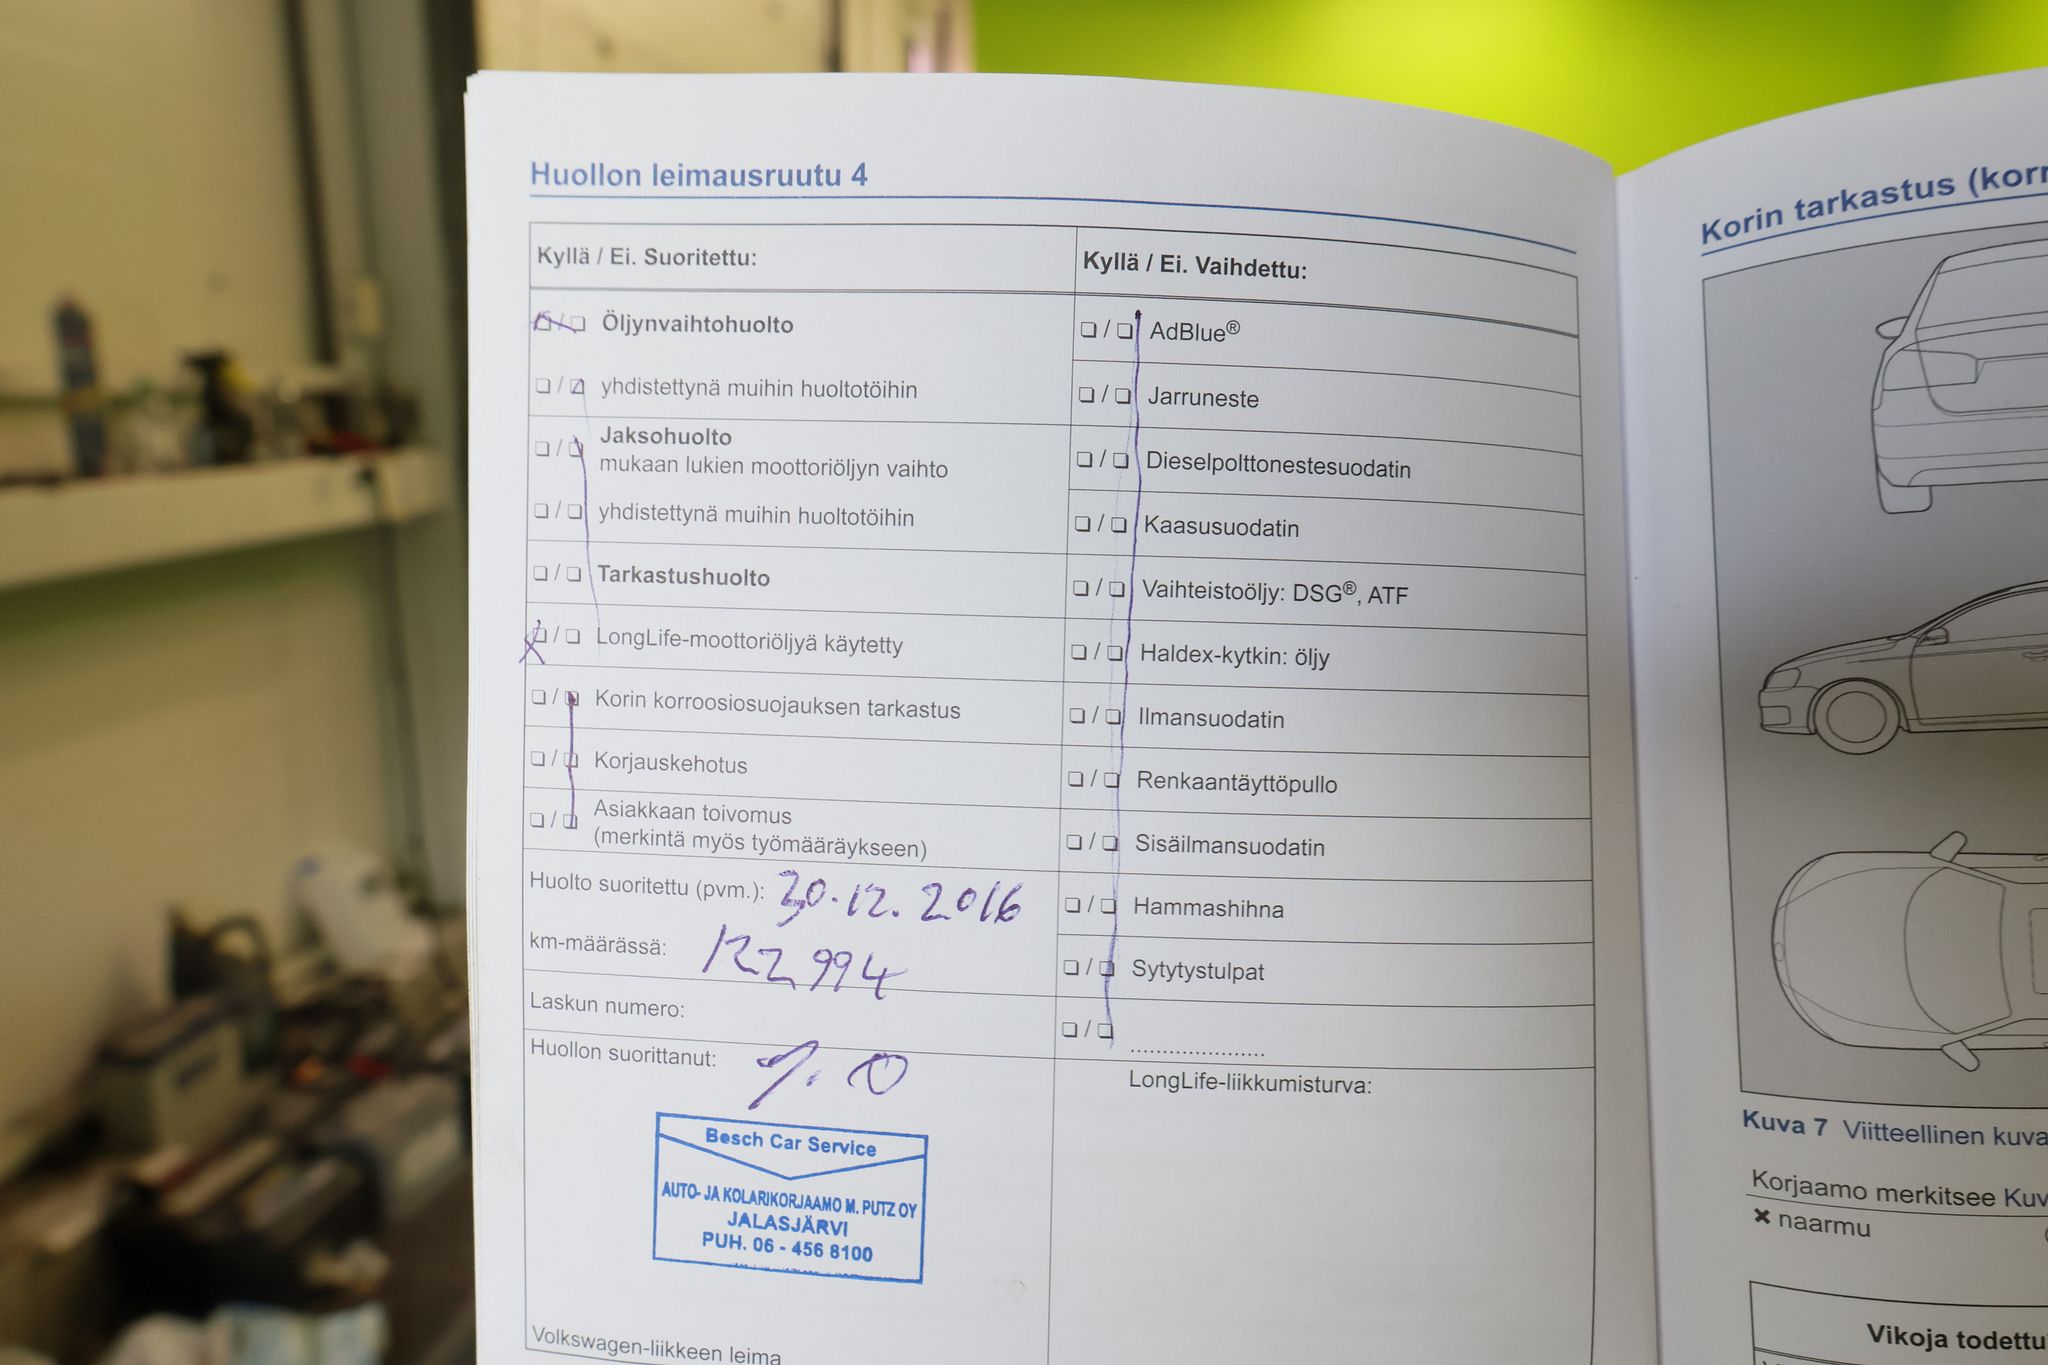 Huollon leimausruutu 4
Kyllä / Ei. Suoritettu:
Öljynvaihtohuolto
yhdistettynä muihin huoltotöihin
Jaksohuolto
mukaan lukien moottoriöljyn vaihto
yhdistettynä muihin huoltotöihin
Tarkastushuolto
LongLife-moottoriöljyä käytetty
Korin korroosiosuojauksen tarkastus
Korjauskehotus
Asiakkaan toivomus
(merkintä myös työmääräykseen)
Huolto suoritettu (pvm.): 30.12.2016
km-määrässä: 122994
Laskun numero:
Huollon suorittanut:
Besch Car Service
AUTO- JA KOLARIKORJAAMO M. PUTZ OY
JALASJÄRVI
PUH. 06 - 456 8100
Volkswagen-liikkeen leima
Kyllä / Ei. Vaihdettu:
AdBlue®
Jarruneste
Dieselpolttonestesuodatin
Kaasusuodatin
Vaihteistoöljy: DSG®, ATF
Haldex-kytkin: öljy
Ilmansuodatin
Renkaantäyttöpullo
Sisäilmansuodatin
Hammashihna
Sytytystulpat
.....................
LongLife-liikkumisturva:
Korin tarkastus (korr
Kuva 7 Viitteellinen kuva
Korjaamo merkitsee Kuv
✖ naarmu
Vikoja todettu